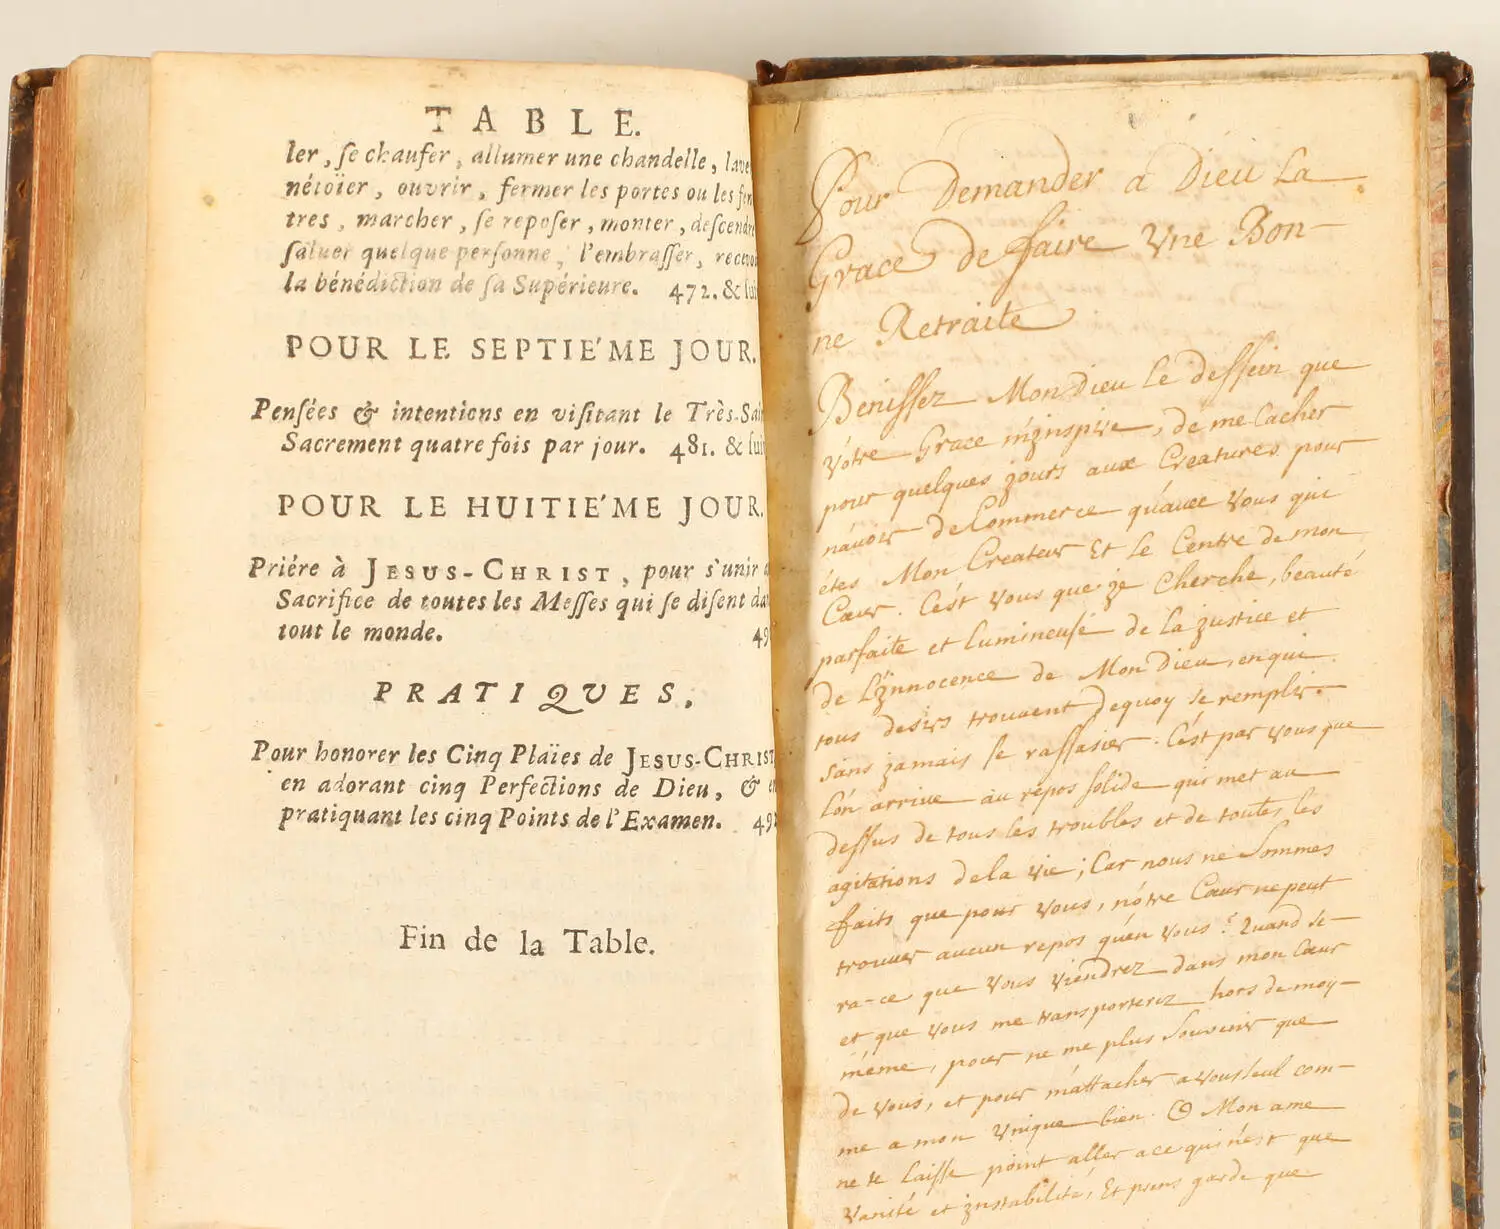 TABLE.
ler, ſe chaufer, allumer une chandelle, lave
nétoïer, ouvrir, fermer les portes ou les fen
tres, marcher, ſe repoſer, monter, deſcendre
ſaluer quelque perſonne, l'embraſſer, recevoi
la bénédiction de ſa Supérieure. 472. & ſui
POUR LE SEPTIE'ME JOUR.
Penſées & intentions en viſitant le Très-Sai
Sacrement quatre fois par jour. 481. & ſui
POUR LE HUITIE'ME JOUR.
Priére à JESUS-CHRIST, pour s'unir a
Sacrifice de toutes les Meſſes qui ſe diſent da
tout le monde. 49
PRATIQUES,
Pour honorer les Cinq Plaïes de JESUS-CHRIST
en adorant cinq Perfections de Dieu, & e
pratiquant les cinq Points de l'Examen. 49
Fin de la Table.
Pour Demander a Dieu La
Grace de faire Vne Bon-
ne Retraite
Benissez Mon Dieu Le dessein que
vôtre Grace m'jnspire, de me Cacher
pour quelques jours aux Creatures pour
n'avoir de Commerce qu'avec Vous qui
étes Mon Createur Et Le Centre de mon
Cœur. C'est Vous que je Cherche, beauté
parfaite et Lumineuse de La justice et
de L'jnnocence de Mon Dieu, en qui
tous desirs trouvent dequoy se remplir
sans jamais se rassasier. C'est par Vous que
L'on arrive au repos solide qui met au
dessus de tous Les troubles et de toutes les
agitations de La Vie; Car nous ne Sommes
faits que pour Vous, nôtre Cœur ne peut
trouver aucun repos qu'en Vous? Quand se-
ra-ce que Vous Viendrez dans mon Cœur
et que Vous me transporterez hors de moy-
méme, pour ne me plus Souvenir que
de Vous, et pour m'attacher a Vous seul com-
me a mon Vnique bien. O Mon ame
ne te Laisse point aller a ce qui n'est que
Vanité et jnstabilité, Et prens garde que